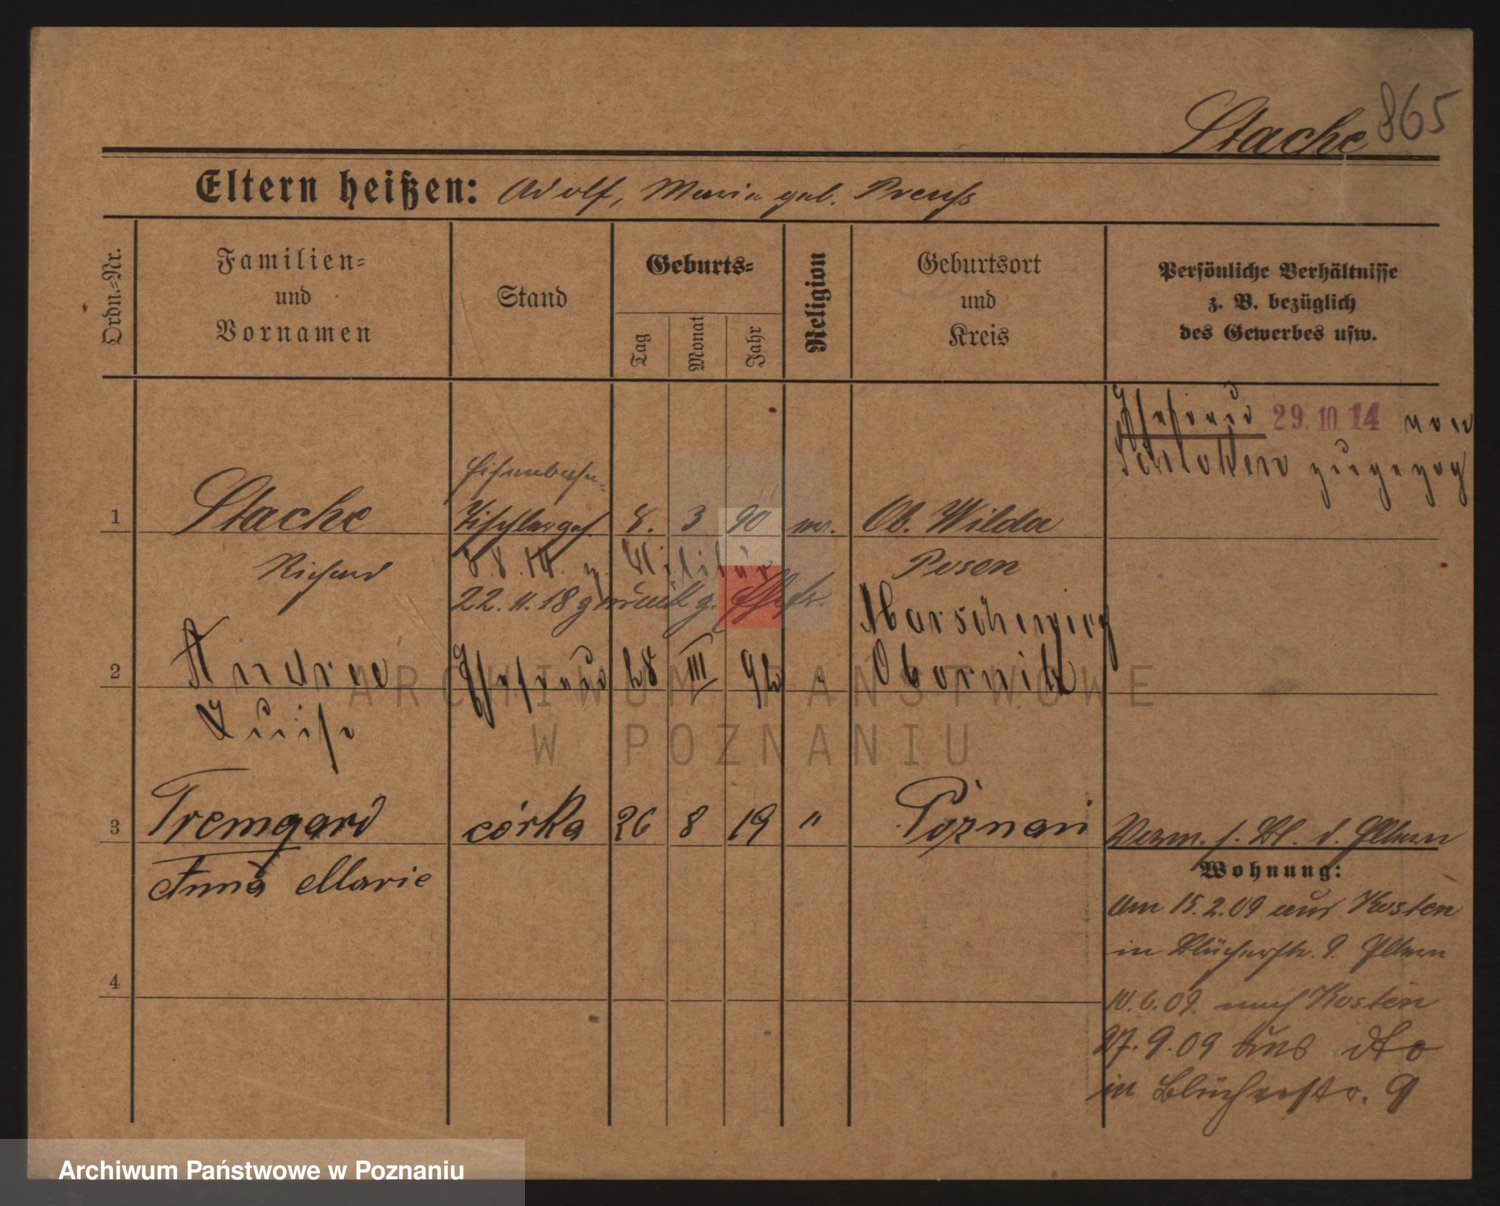 Stache 865
Eltern heißen: Adolf, Maria geb. Preuß
Ordn.-Nr.
Familien-
und
Vornamen
Stand
Geburts-
Tag
Monat
Jahr
Religion
Geburtsort
und
Kreis
Persönliche Verhältnisse
z. B. bezüglich
des Gewerbes usw.
Ehefrau 29.10.14 von
Schloken zugezog
Eisenbahn-
1 Stache Tischlerges. 8. 3 90 ev. Ob. Wilda
Richard Posen
8.8.14. z. Militär
22.11.18 zurück z.
Andree Ehefrau 28 III 92 "
2 Obornik
Luise
3 Iremgard córka 26 8 19 " Poznań
Verm. s. Bl. d. Eltern
Anna Marie
Wohnung:
Am 15.2.09 aus Kosten
in Blücherstr. 9. Eltern
4
10.6.09. nach Kosten
27.9.09 aus dto
in Blücherstr. 9
ARCHIWUM PAŃSTWOWE
W POZNANIU
Archiwum Państwowe w Poznaniu